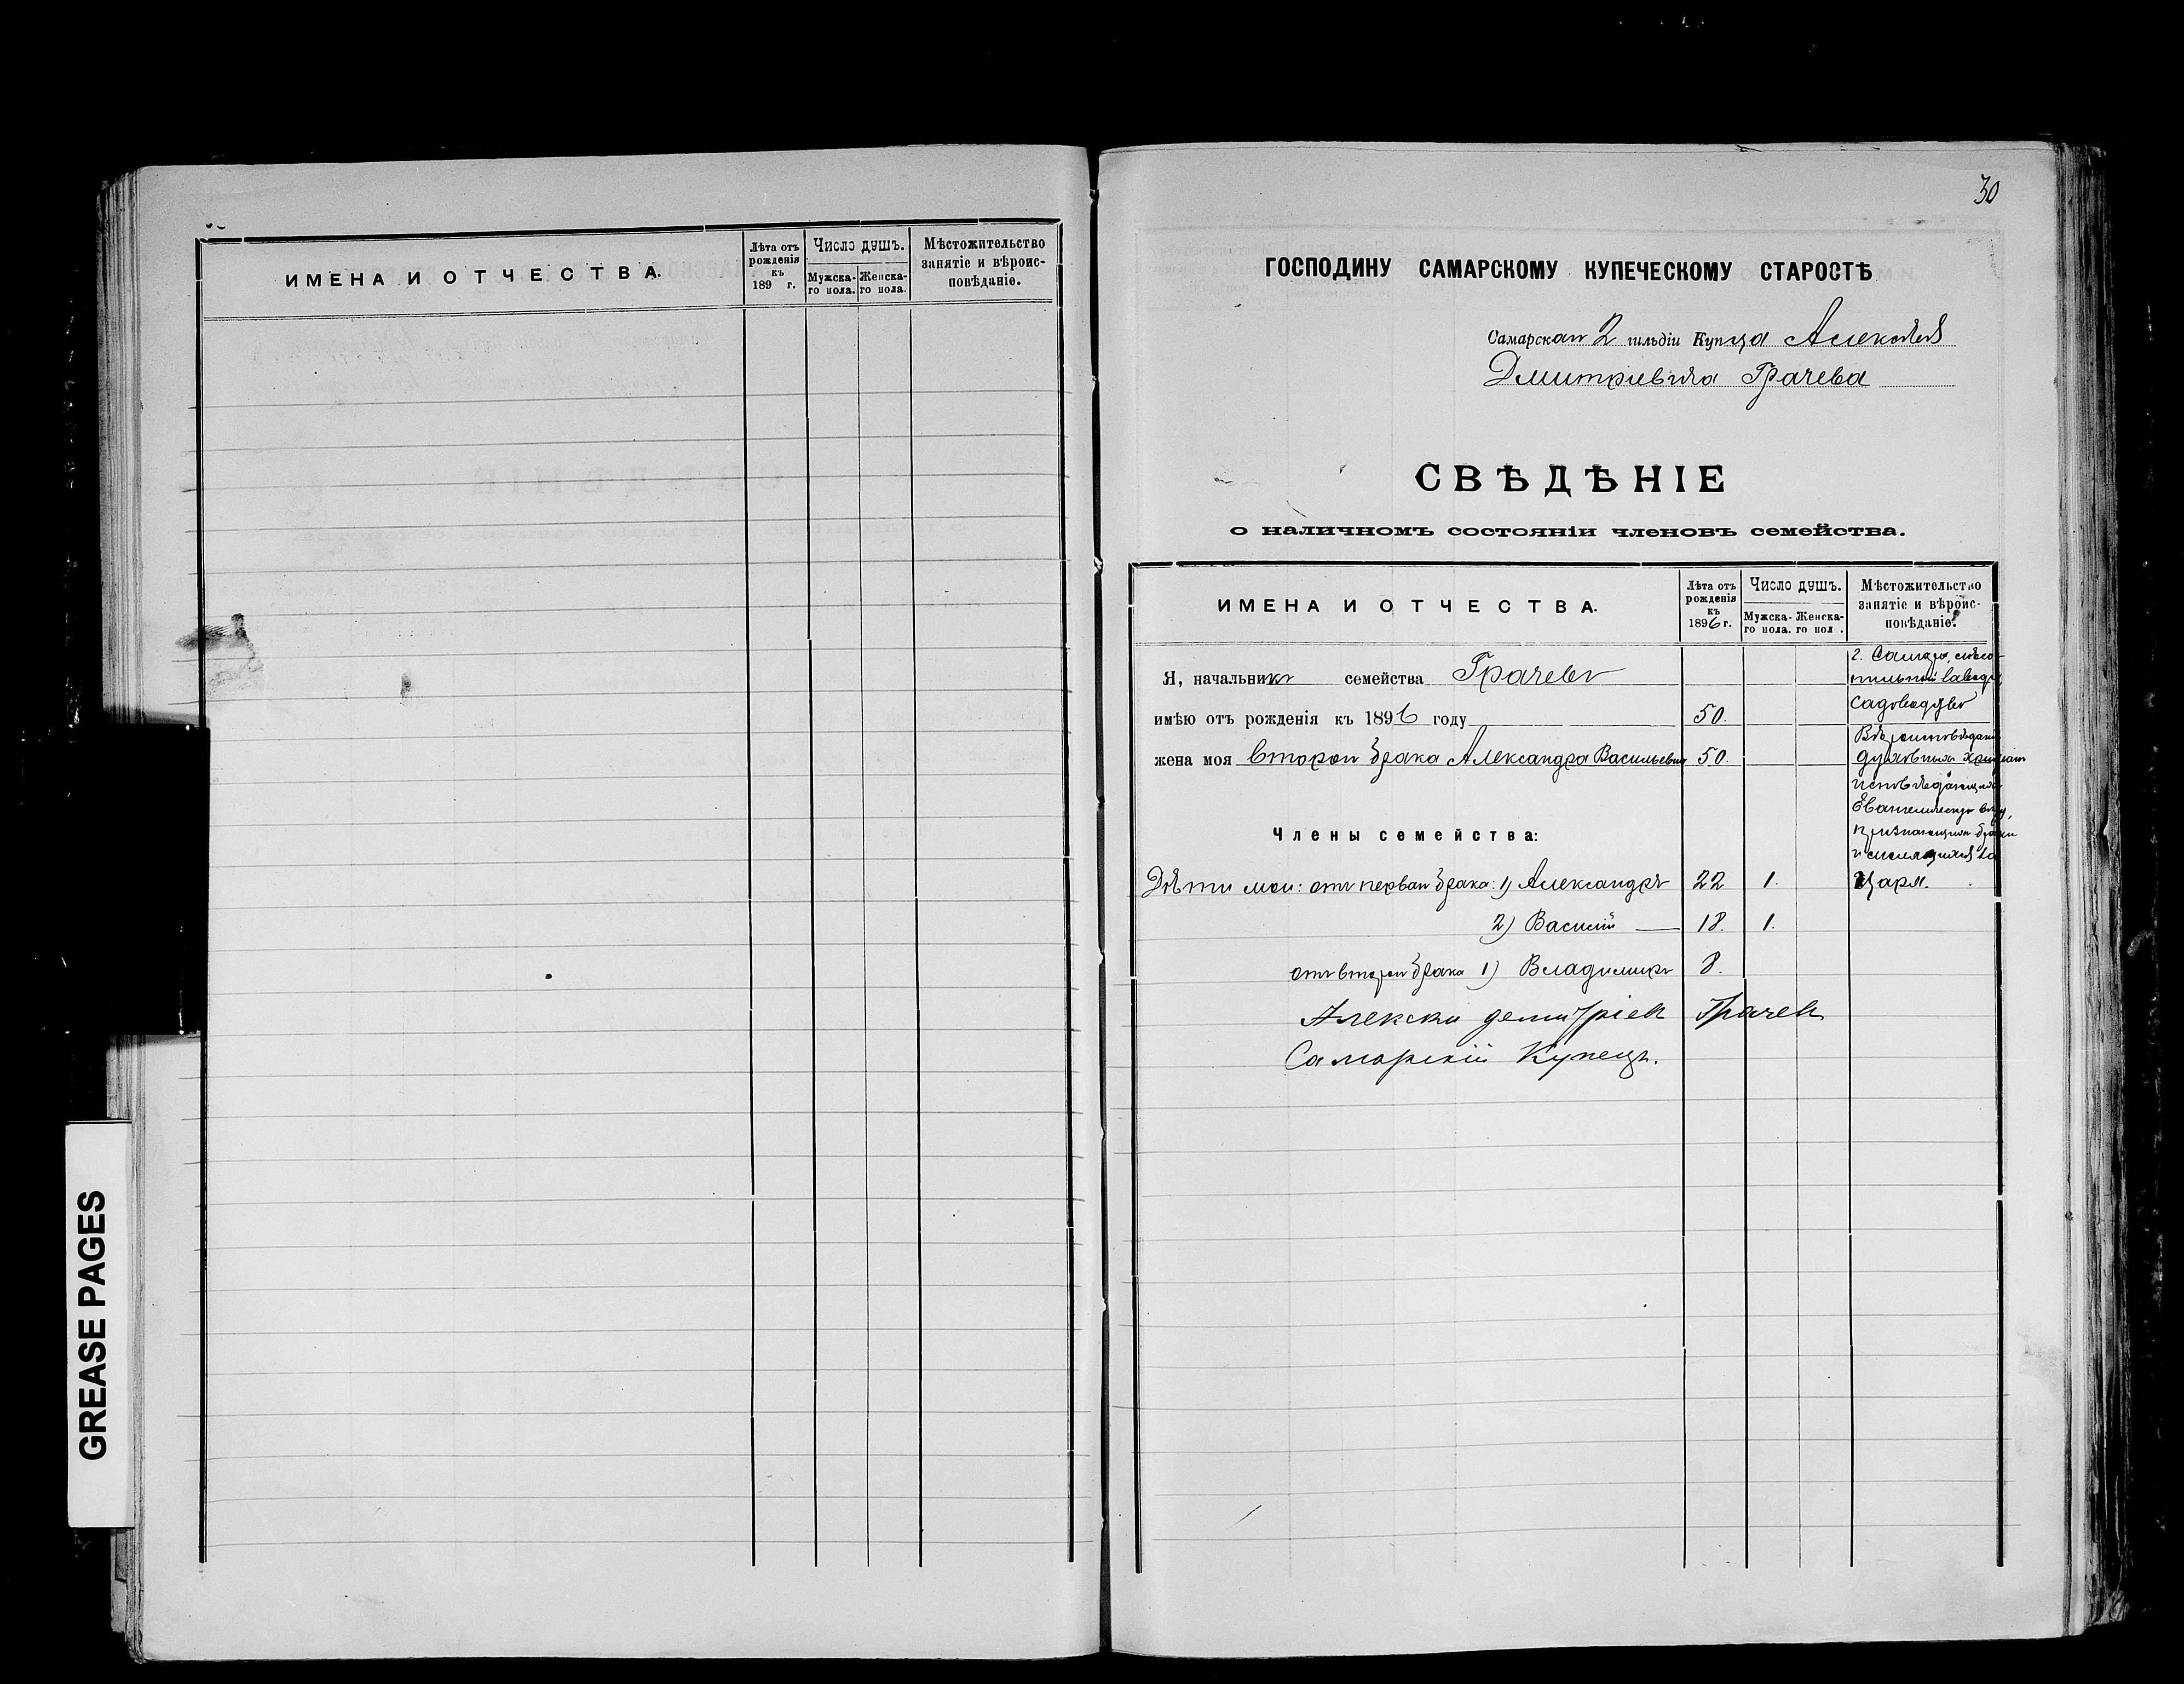 ИМЕНА И ОТЧЕСТВА.
Лѣта отъ рожденія къ 189 г.
Число душъ.
Мужска-го пола.
Женска-го пола.
Мѣстожительство занятіе и вѣроис-повѣданіе.
GREASE PAGES
30
ГОСПОДИНУ САМАРСКОМУ КУПЕЧЕСКОМУ СТАРОСТѢ
Самарскаго 2 гильдіи Купца Алексѣя
Дмитріевича Грачева
СВѢДѢНІЕ
о наличномъ состояніи членовъ семейства.
ИМЕНА И ОТЧЕСТВА.
Лѣта отъ рожденія къ 1896 г.
Число душъ.
Мужска-го пола.
Женска-го пол .
Мѣстожительство занятіе и вѣроис-повѣданіе.
Я, начальникъ семейства Грачевъ
имѣю отъ рожденія къ 1896 году 50.
жена моя второго брака Александра Васильевна 50.
г. Самара,
садоводство
Вѣроисповѣданія
духовныхъ христіанъ
исповѣдающихъ
Евангелическую вѣру,
признающихъ браки
и молящихся за
Царя.
Члены семейства:
Дѣти мои: отъ перваго брака: 1) Александръ 22 1.
2) Василій 18. 1.
отъ второго брака 1) Владимиръ 8.
Алексѣй Демитріев Грачев
Самарскій Купецъ.